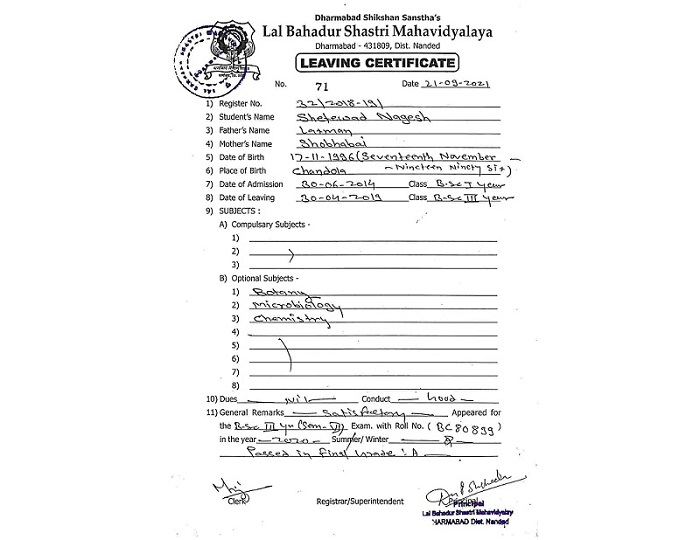 Dharmabad Shikshan Sanstha's
Lal Bahadur Shastri Mahavidyalaya
Dharmabad - 431809, Dist. Nanded
LEAVING CERTIFICATE
No. 71 Date 21-09-2021
1) Register No. 32/2018-19/
2) Student's Name Shetewad Nagesh
3) Father's Name Laxman
4) Mother's Name Shobhabai
5) Date of Birth 17-11-1996 (Seventeenth November
6) Place of Birth Chandola - Nineteen Ninety Six)
7) Date of Admission 30-06-2014 Class B.sc I year
8) Date of Leaving 30-04-2019 Class B.sc III year
9) SUBJECTS :
A) Compulsary Subjects -
1)
2)
3)
B) Optional Subjects -
1) Botany
2) Microbiology
3) Chemistry
4)
5)
6)
7)
8)
10) Dues Nil Conduct Good
11) General Remarks Satisfactory Appeared for
the B.sc III yr (Sem-VI) Exam. with Roll No. (BC80899)
in the year 2020 Summer/ Winter
Passed in final Grade : A
Clerk Registrar/Superintendent Principal
Principal
Lal Bahadur Shastri Mahavidyalay
DHARMABAD Dist. Nanded